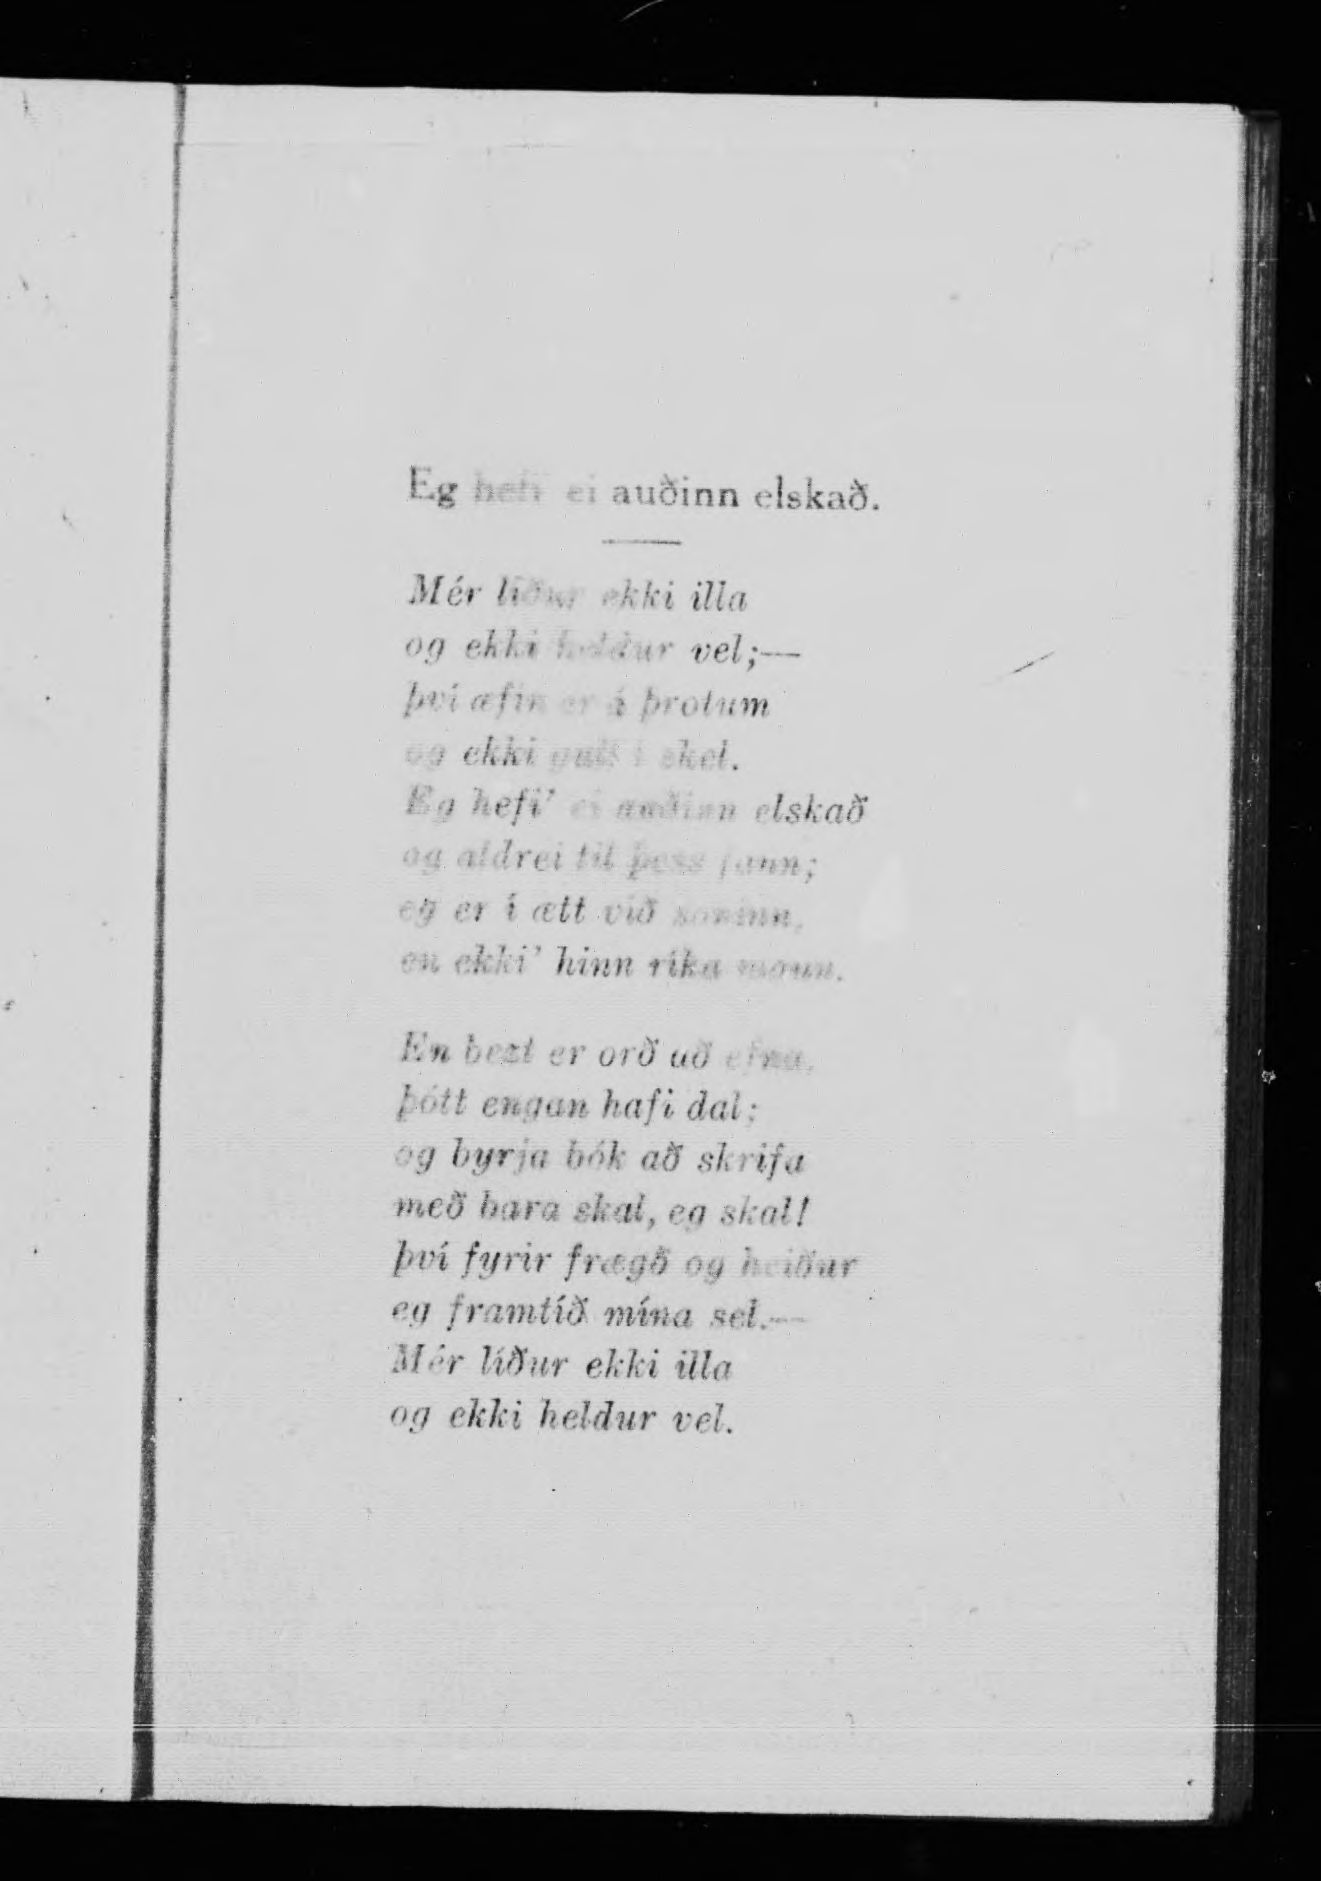 Eg hefi ei auðinn elskað.
Mér líður ekki illa
og ekki heldur vel;—
því æfin er á þrotum
og ekki gull í skel.
Eg hefi' ei auðinn elskað
og aldrei til þess fann;
eg er í ætt við
en ekki' hinn ríka mann.
En bezt er orð að efna,
þótt engan hafi dal;
og byrja bók að skrifa
með bara skal, eg skal!
því fyrir frægð og heiður
eg framtíð mína sel.—
Mér líður ekki illa
og ekki heldur vel.